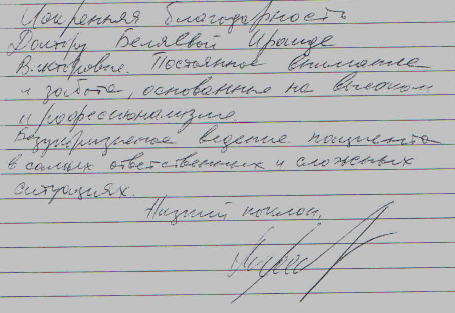 Искренняя благодарность
Доктору Беляевой Ираиде
Викторовне. Постоянное внимание
и забота, основанные на высоком
профессионализме.
Безукоризненое ведение пациента
в самых ответственных и сложных
ситуациях.
Низкий поклон.